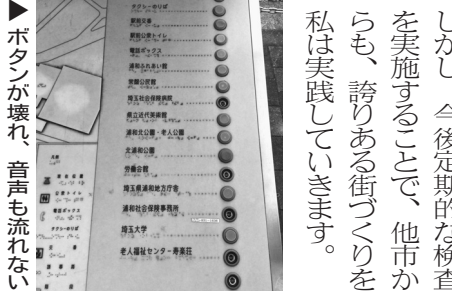 しかし、今後定期的な検査
を実施することで、他市か
らも、誇りある街づくりを
私は実践していきます。
タクシーのりば
駅前交番
駅前公衆トイレ
電話ボックス
浦和ふれあい館
常盤公民館
埼玉社会保険病院
県立近代美術館
浦和北公園・老人公園
北浦和公園
労働会館
埼玉県浦和地方庁舎
浦和社会保険事務所
埼玉大学
老人福祉センター寿楽荘
公衆トイレ
電話ボックス
タクシーのりば
▶ボタンが壊れ、音声も流れない